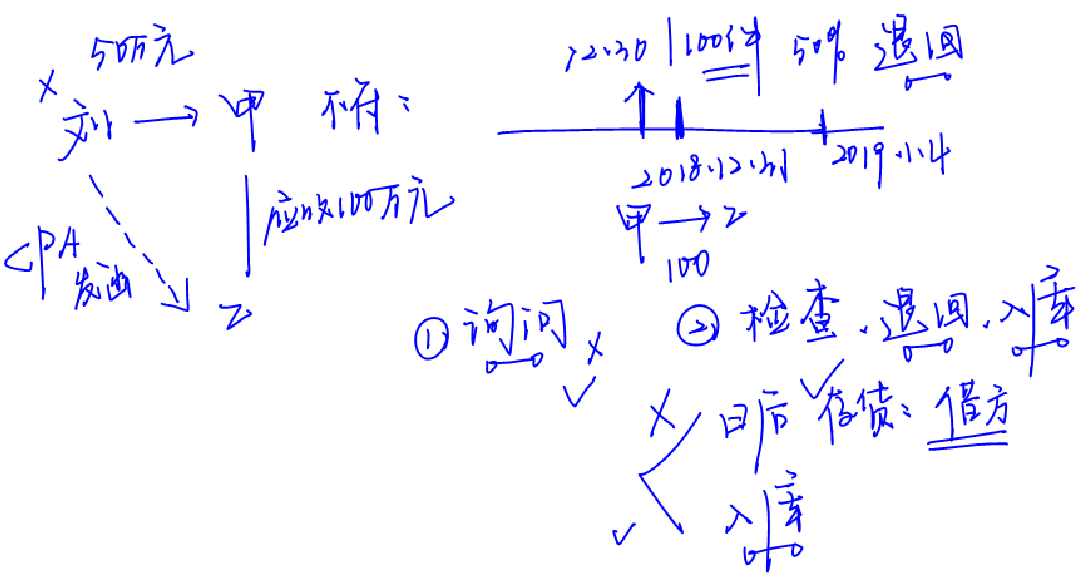 50万元
× 刘 → 甲 不符：
应收100万元
CPA
发函
乙
12.30 100件 50% 退回
2018.12.31 2019.1.4
甲 → 乙
100
① 询问 × ✓
② 检查.退回.入库
× 日后 ✓ 存货：借方
✓ 入库